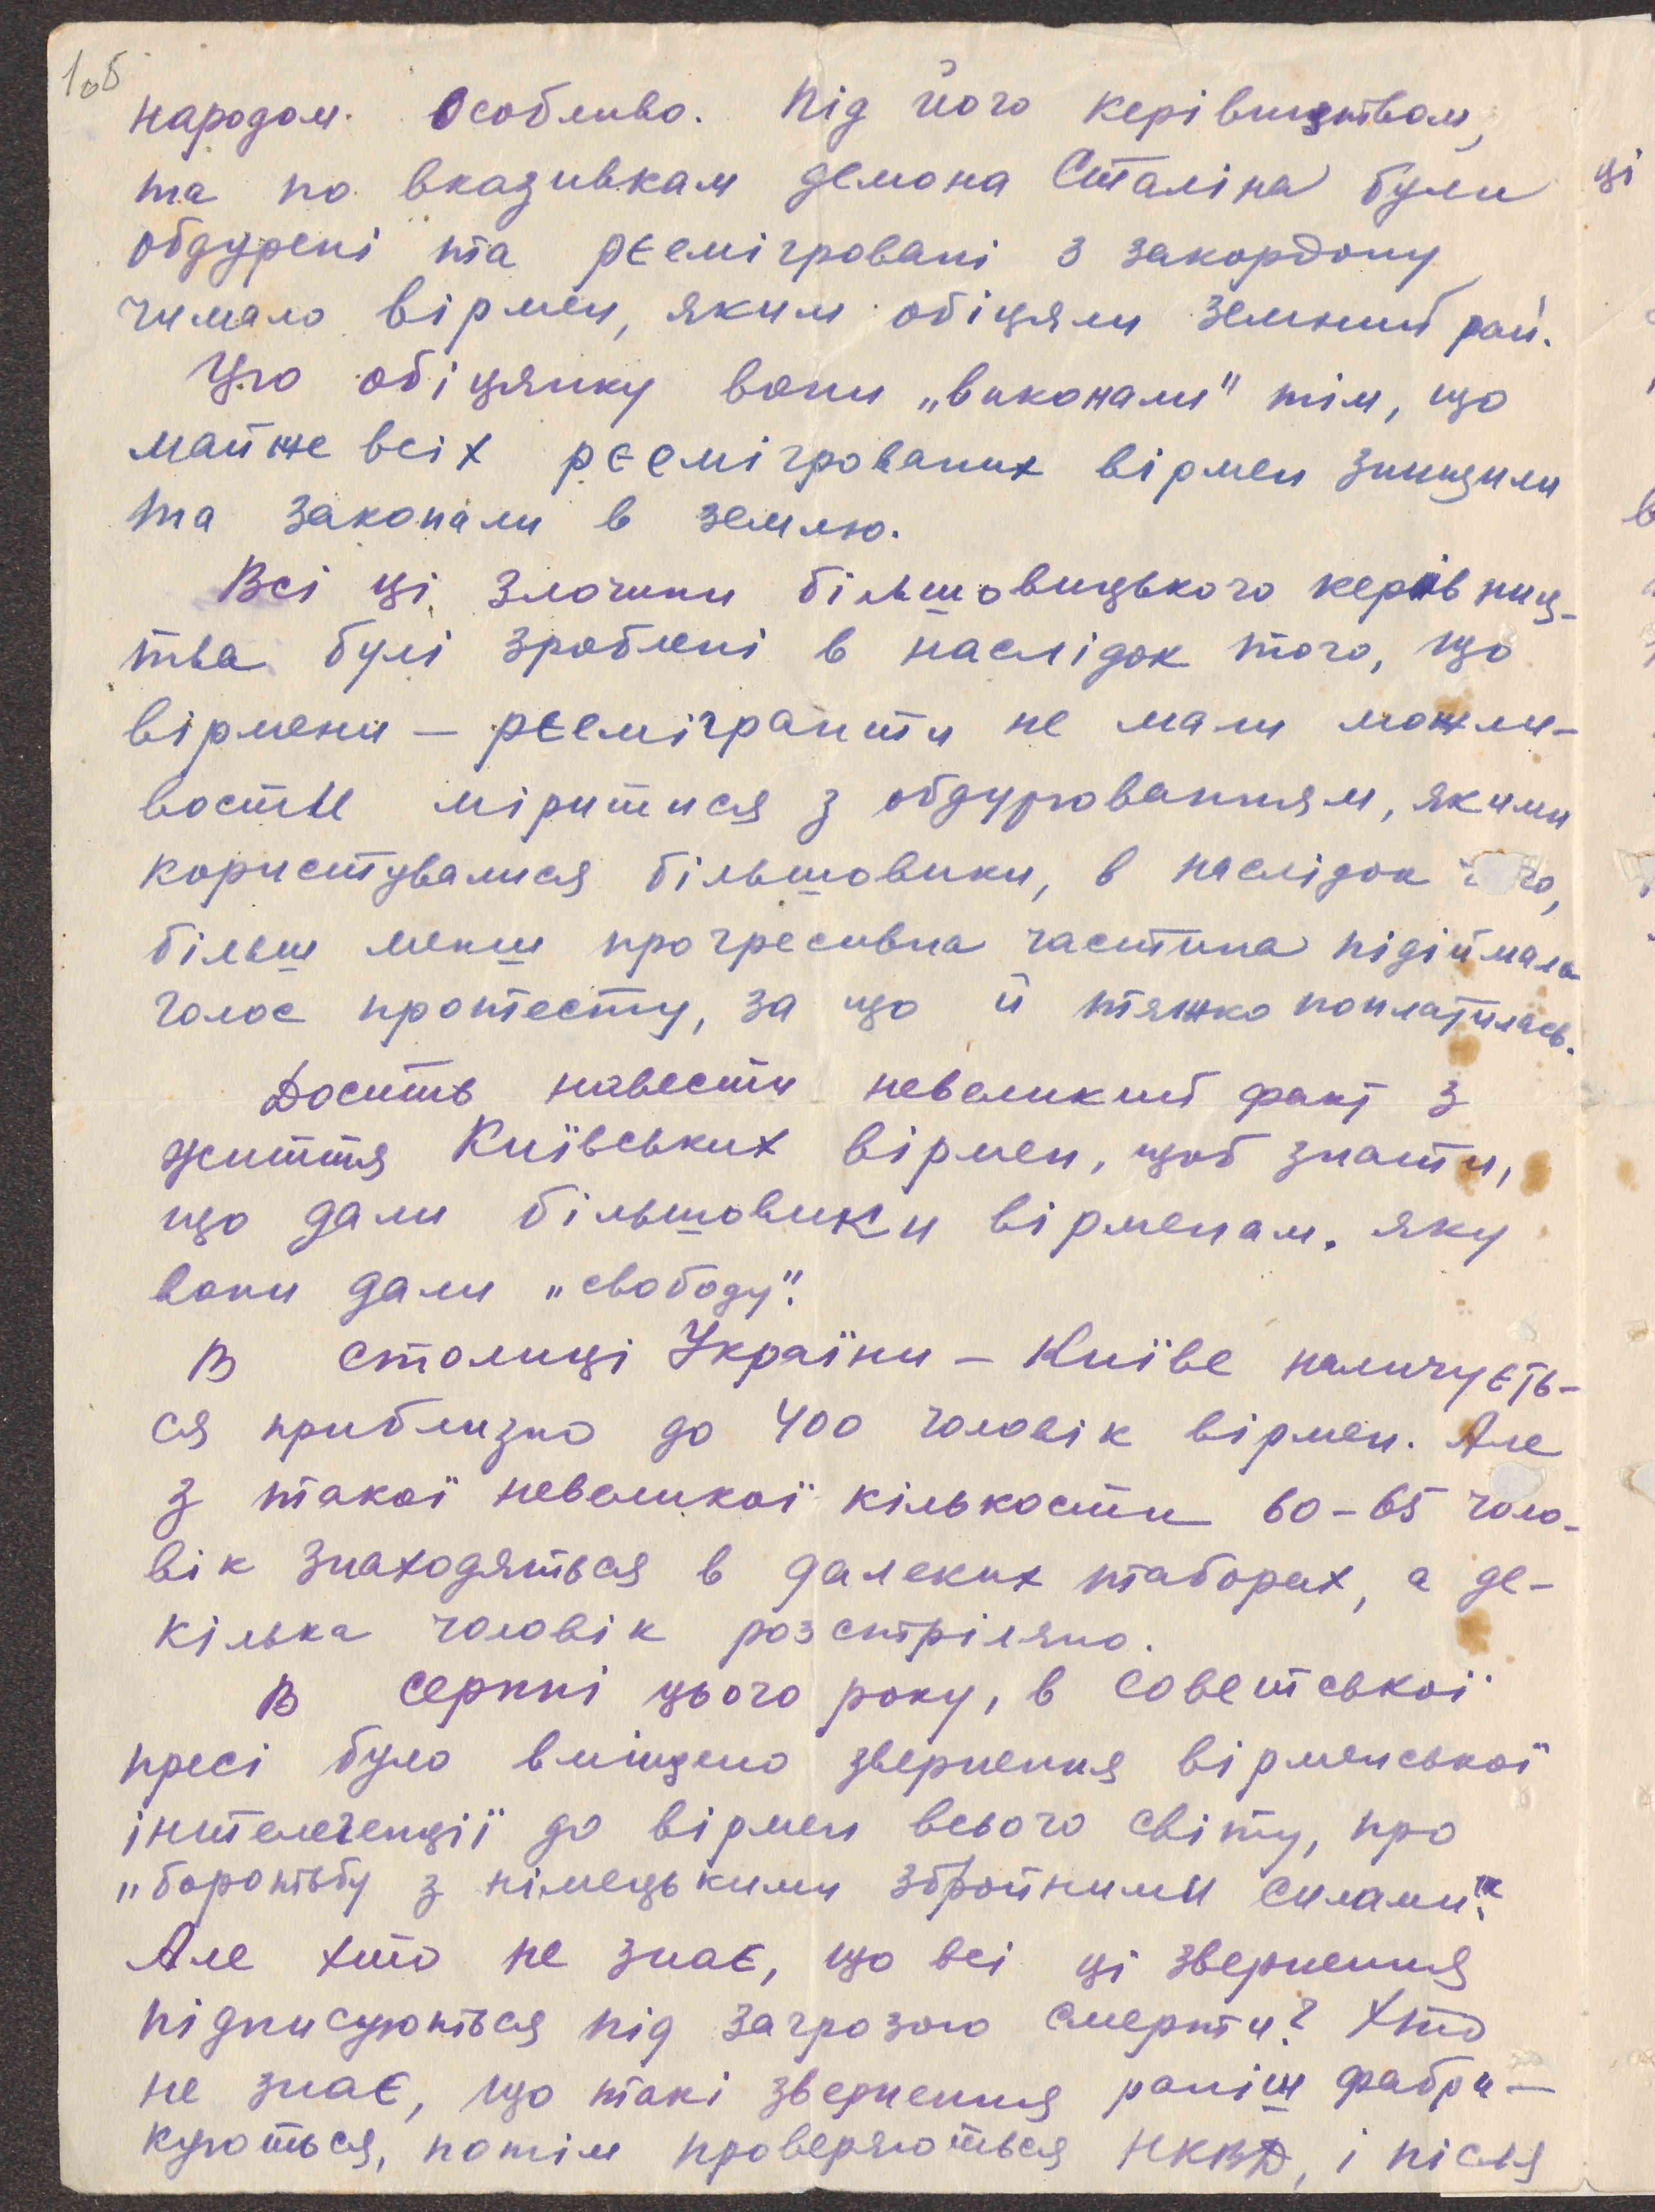 1об
народом. Особливо. Під його керівництвом,
та по вказивкам демона Сталіна були
обдурені та рєемігровані з закордону
чимало вірмен, яким обіцяли земний рай.
Цю обіцянку вони „виконали" тім, що
майже всіх рєемігрованих вірмен знищили
та закопали в землю.
Всі ці злочини більшовицького керівниц-
тва булі зроблені в наслідок того, що
вірмени — рєемігранти не мали можли-
вости міритися з обдурюванням, якими
користувалися більшовики, в наслідок
більш менш прогресивна частина підіймала
голос протесту, за що й тяжко поплатилась.
Досить навести невеликий факт з
життя Київських вірмен, щоб знати,
що дали більшовики вірменам. яку
вони дали „свободу".
В столиці України — Київе наличуєть-
ся приблизно до 400 чоловік вірмен. Але
з такої невеликої кількости 60-65 чоло-
вік знаходяться в далеких таборах, а де-
кілька чоловік розстріляно.
В серпні цього року, в совєтської
пресі було вміщено звернення вірменської
інтелегенції до вірмен всього світу, про
„боротьбу з німецькими збройними силами".
Але хто не знає, що всі ці звернення
підписуються під загрозою смерти? Хто
не знає, що такі звернення раніш фабри-
куються, потім проверяються НКВД, і після
ці